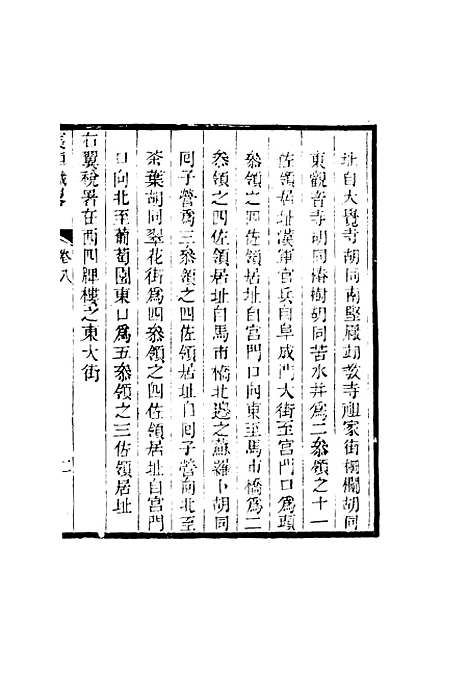 址自大覺寺胡同南堅厰勅敎寺祖家街栅欄胡同
東觀音寺胡同椿樹胡同苦水井爲二叅領之十一
佐領居址漢軍官兵自阜成門大街至宮門口爲頭
叅領之四佐領居址自宮門口向東至馬市橋爲二
叅領之四佐領居址自馬市橋北邊之蘇蘿卜胡同
囘子營爲三叅領之四佐領居址自囘子營向北至
茶葉胡同翠花街爲四叅領之四佐領居址自宮門
口向北至葡萄園東口爲五叅領之三佐領居址
右翼稅署在西四牌樓之東大街
宸垣識略 卷八